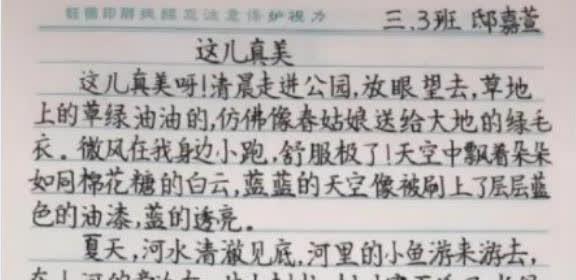 鞋圈印刷残题应注意保护视力
三.3班 邸嘉萱
这儿真美
这儿真美呀!清晨走进公园,放眼望去,草地
上的草绿油油的,仿佛像春姑娘送给大地的绿毛
衣。微风在我身边小跑,舒服极了!天空中飘着朵朵
如同棉花糖的白云,蓝蓝的天空像被刷上了层层蓝
色的油漆,蓝的透亮。
夏天,河水清澈见底,河里的小鱼游来游去,